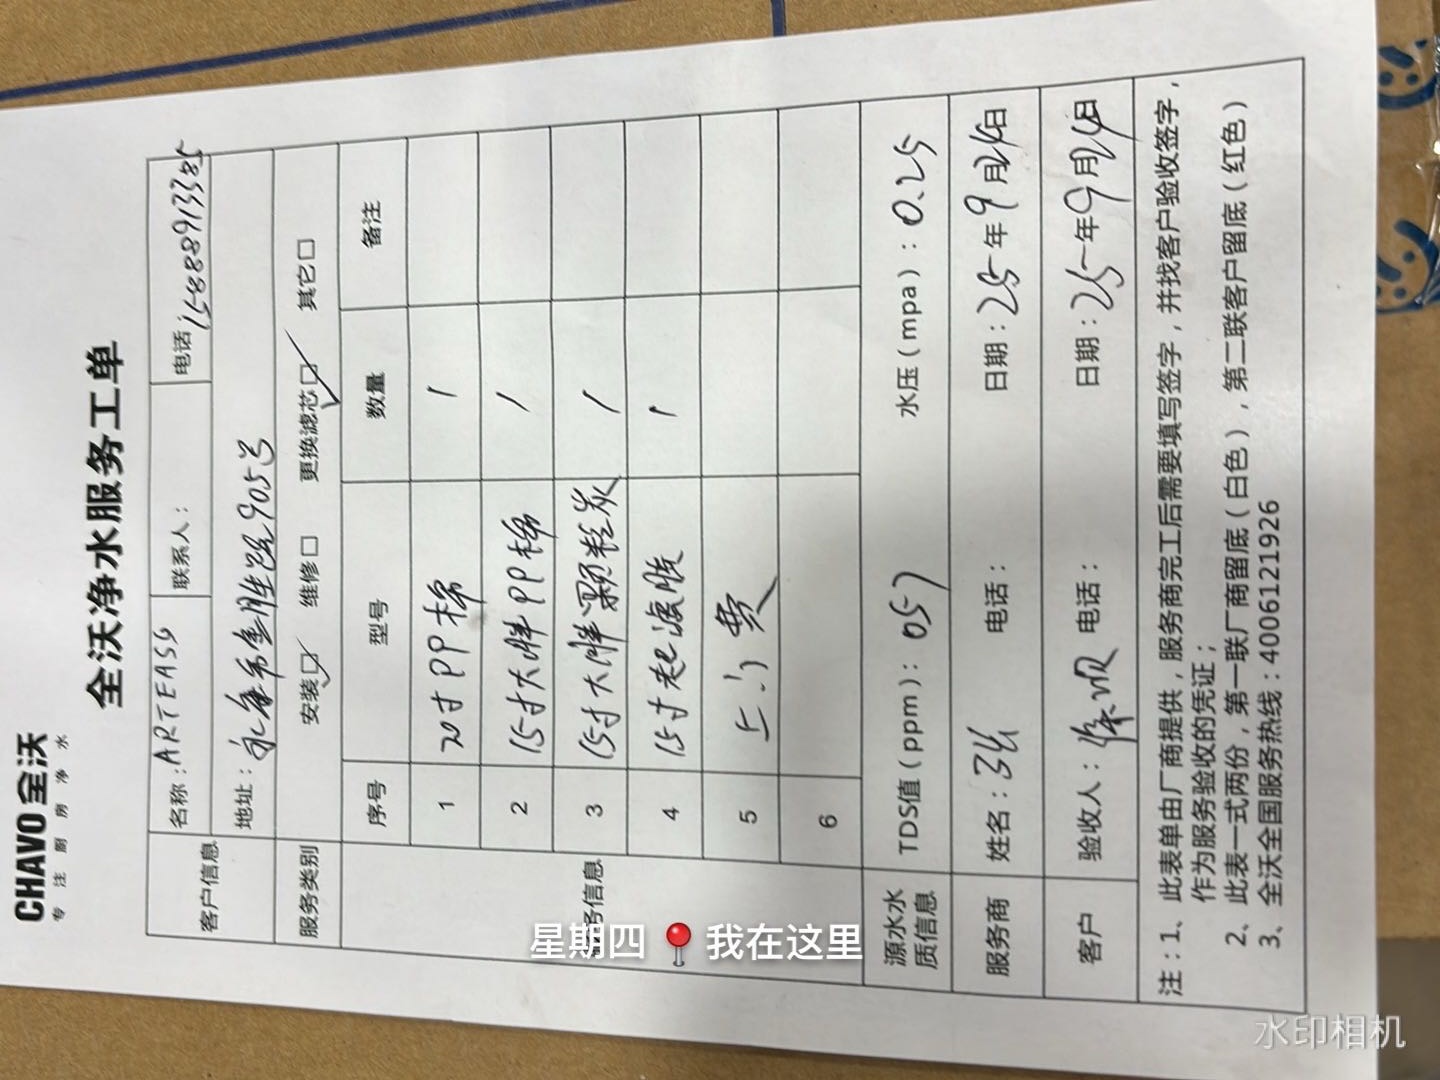 CHAVO 全沃
专注厨房净水
全沃净水服务工单
客户信息 名称：ARTEASG 联系人： 电话：15888913385
地址：永康市金胜路905号
服务类别 安装☑ 维修□ 更换滤芯☑ 其它□
务信息 序号 型号 数量 备注
1 20寸PP棉 1
2 15寸大胖PP棉 1
3 15寸大胖颗粒炭 1
4 15寸超滤膜 1
5 上门费
6
源水水质信息 TDS值（ppm）：057 水压（mpa）：0.25
服务商 姓名： 电话： 日期：25年9月24日
客户 验收人： 电话： 日期：25年9月24日
注：1、此表单由厂商提供，服务商完工后需要填写签字，并找客户验收签字，
作为服务验收的凭证；
2、此表一式两份，第一联厂商留底（白色），第二联客户留底（红色）
3、全沃全国服务热线：4006121926
星期四 📍我在这里
水印相机